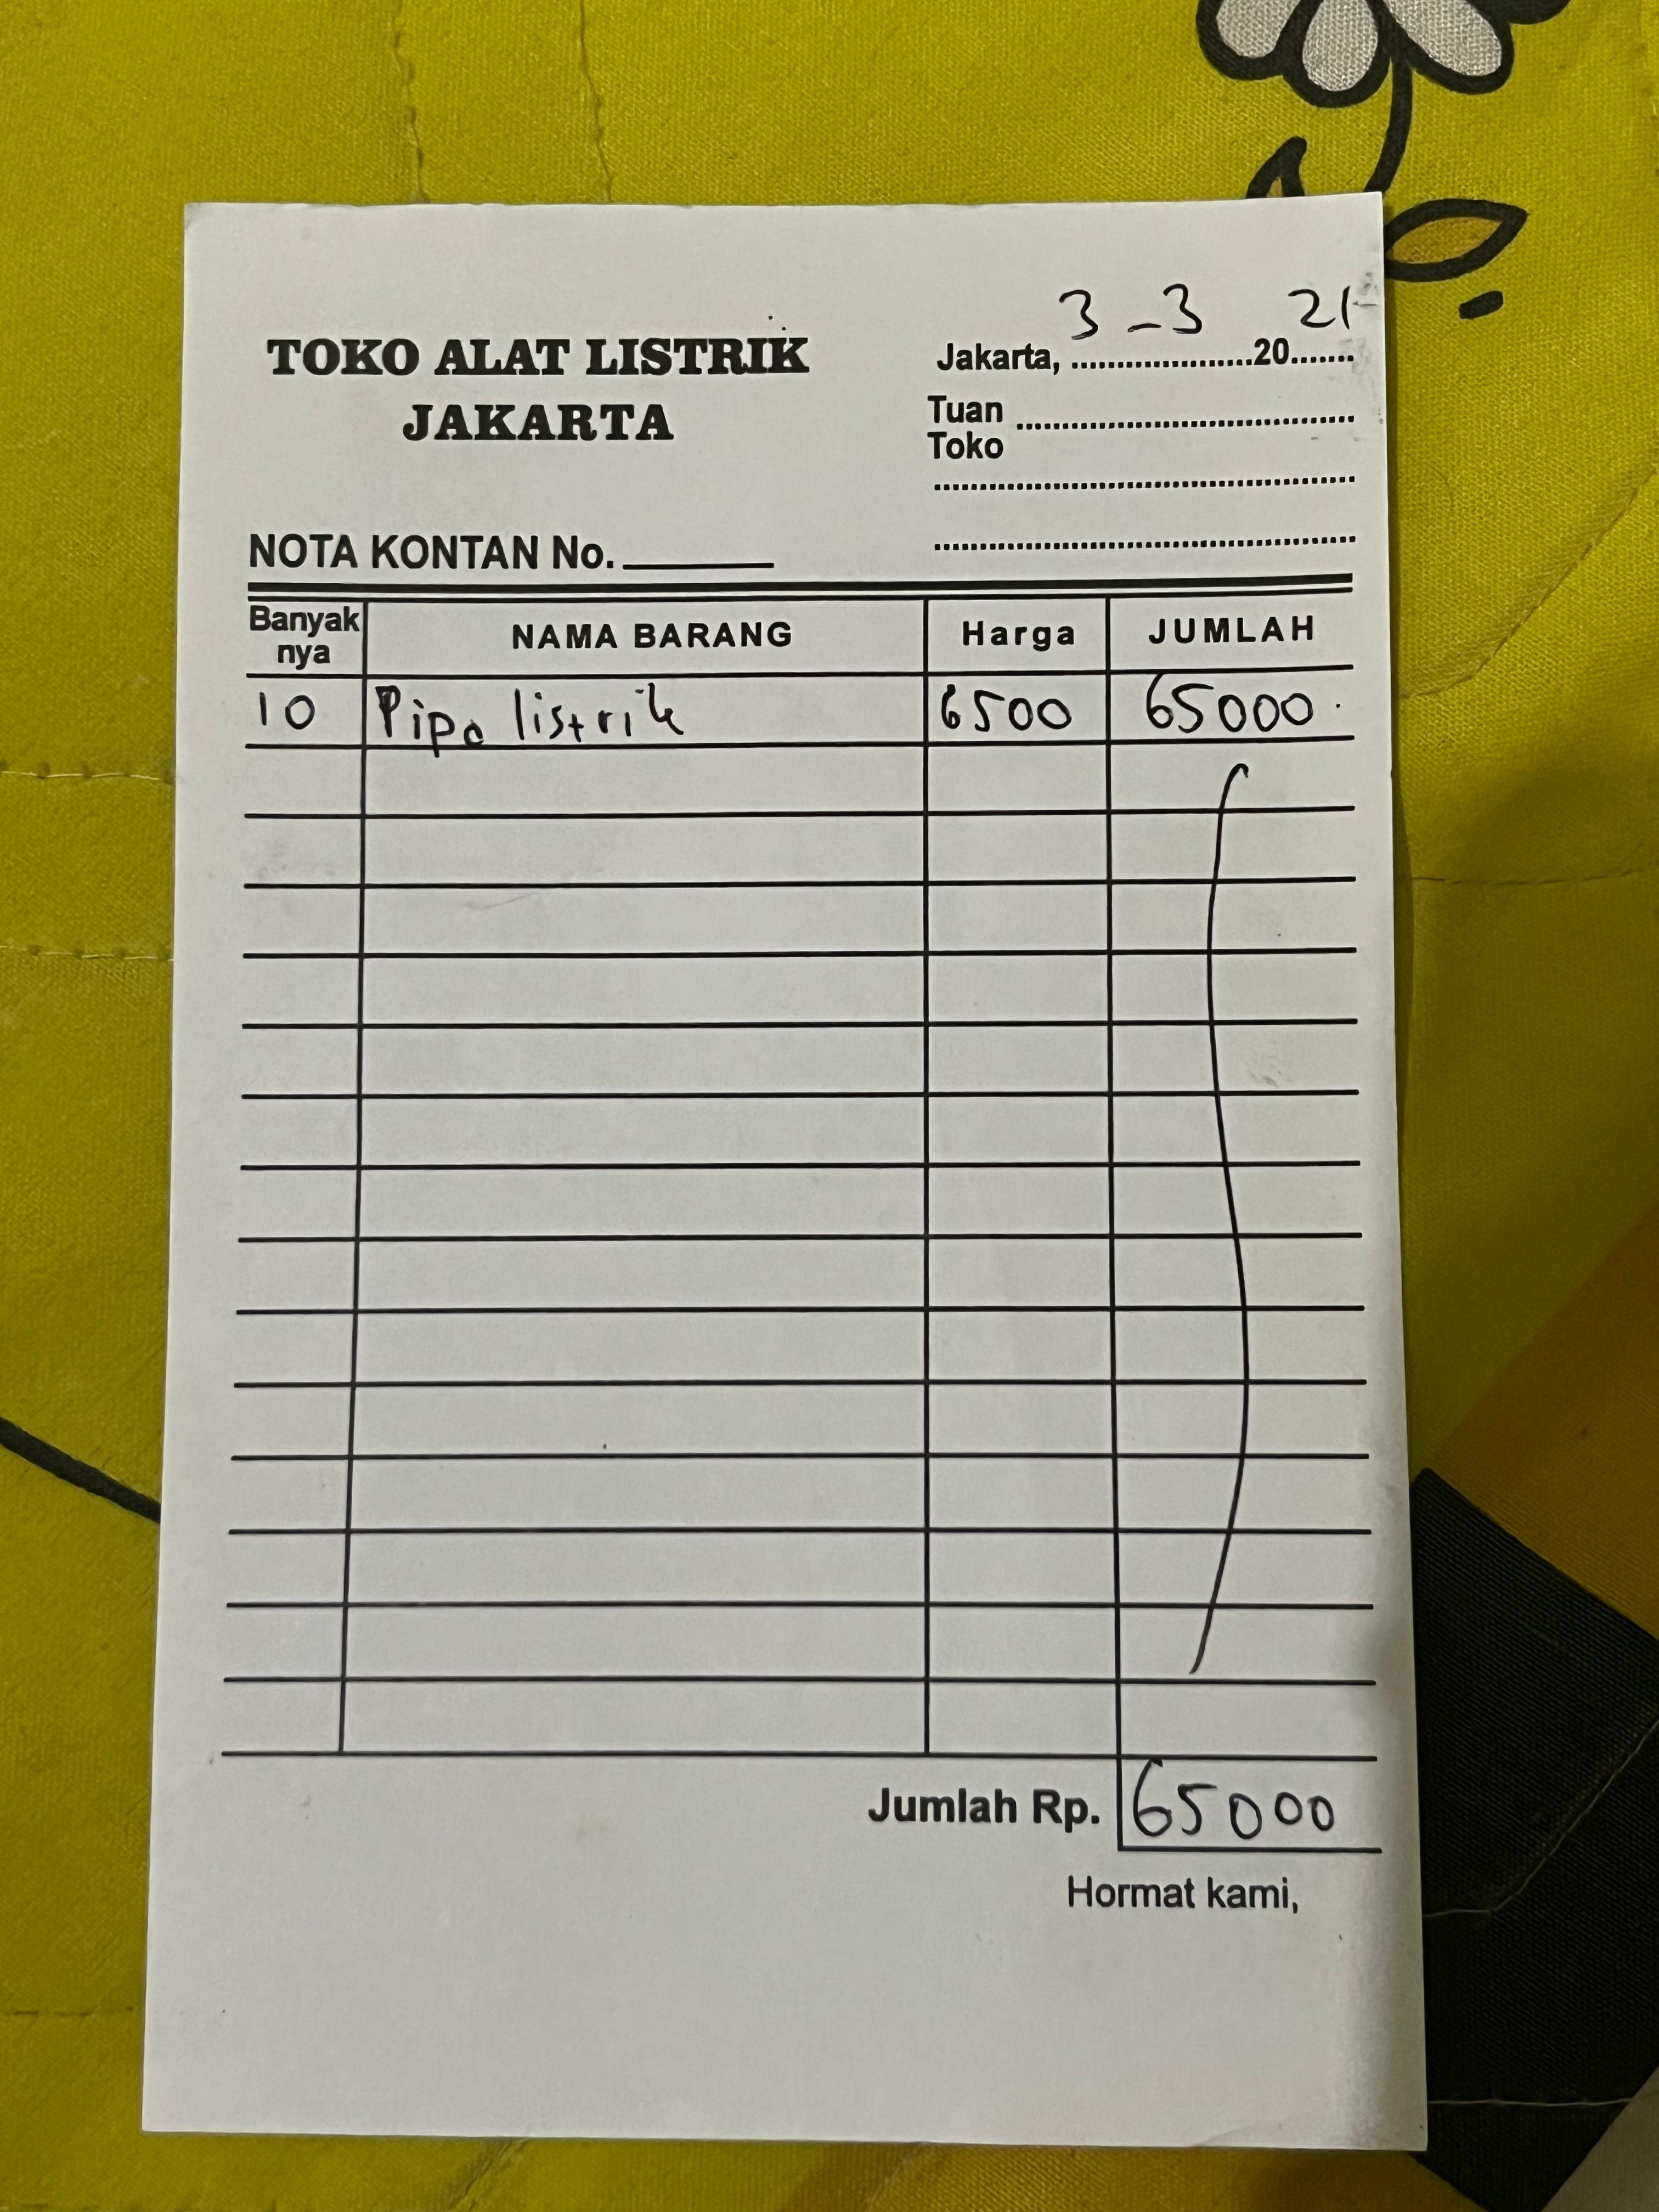 TOKO ALAT LISTRIK
JAKARTA
3 - 3 21
Jakarta, ....................20.......
Tuan ......................................
Toko
................................................
................................................
NOTA KONTAN No. ________
Banyak nya NAMA BARANG Harga JUMLAH
10 Pipa listrik 6500 65000
Jumlah Rp. 65000
Hormat kami,